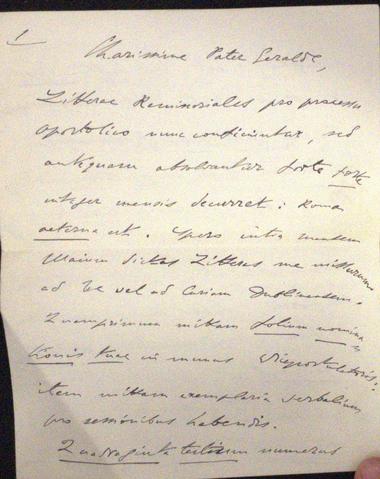 1
Charissime Pater Geralde,
Litterae Remissoriales pro processu
apostolico nunc conficiuntur, sed
antequam absolvantur forte forte
integer mensis decurret: Roma
aeterna est. Spero intra mensem
Maium dictas Litteras me missurum
ad te vel ad Curiam Dublinensem.
Quamprimum mittam folium nomina-
tionis tuae in munus Vicepostulatoris:
item mittam exemplaria verbalium
pro sessionibus habendis.
Quadraginta testium numerus